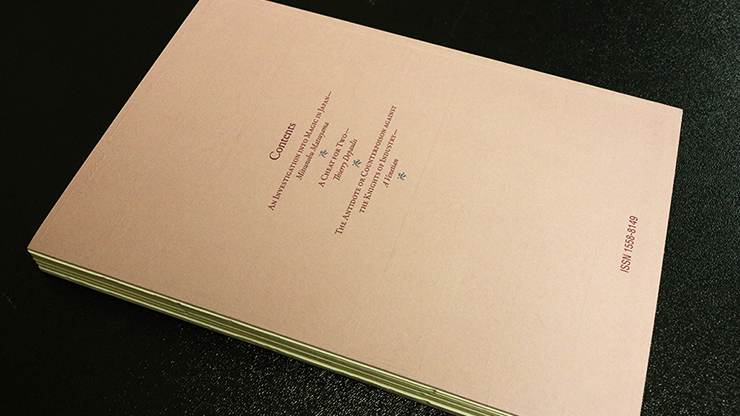 Contents
An Investigation into Magic in Japan—
Mitsunobu Matsuyama
A Cheat for Two—
Thierry Depaulis
The Antidote or Counterpoison against
the Knights of Industry—
A Venetian
ISSN 1558-8149